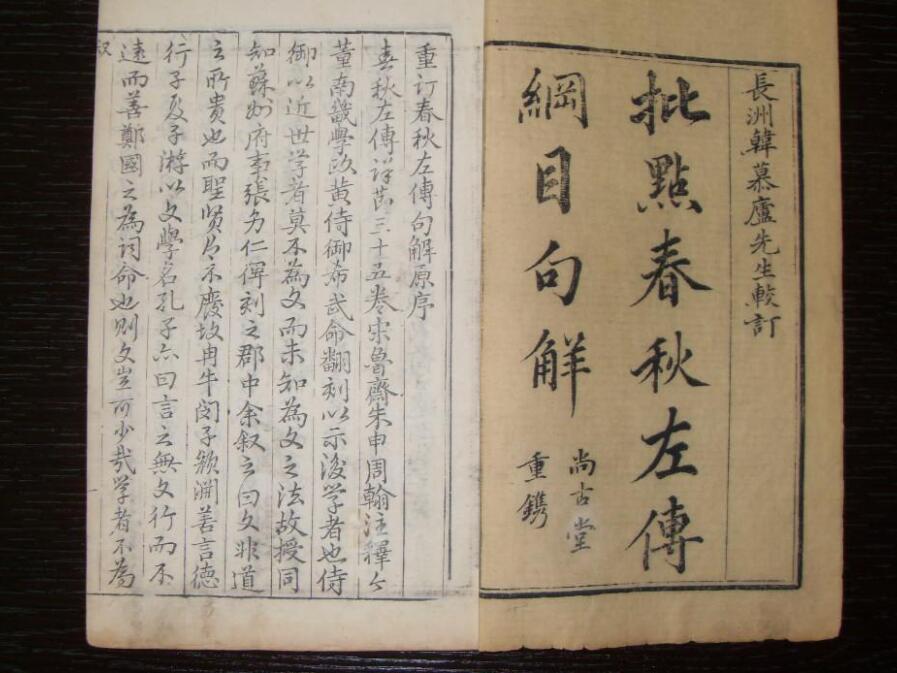 長洲韓慕廬先生較訂
批點春秋左傳
綱目句解
尚古堂
重鐫
重订春秋左傳句解原序
春秋左傳详节三十五卷宋魯齋朱申周翰注釋今
董南畿學政黄侍御希武命翻刻以示後学者也侍
御以近世学者莫不為文而未知為文之法故授同
知蘇州府事張多仁俾刻之郡中余叙之曰文非道
之所贵也而聖贤有不廢故冉牛闵子颜淵善言德
行子夏子游以文學名孔子亦曰言之無文行而不
遠而善鄭國之為词命也則文岂可少哉学者不為